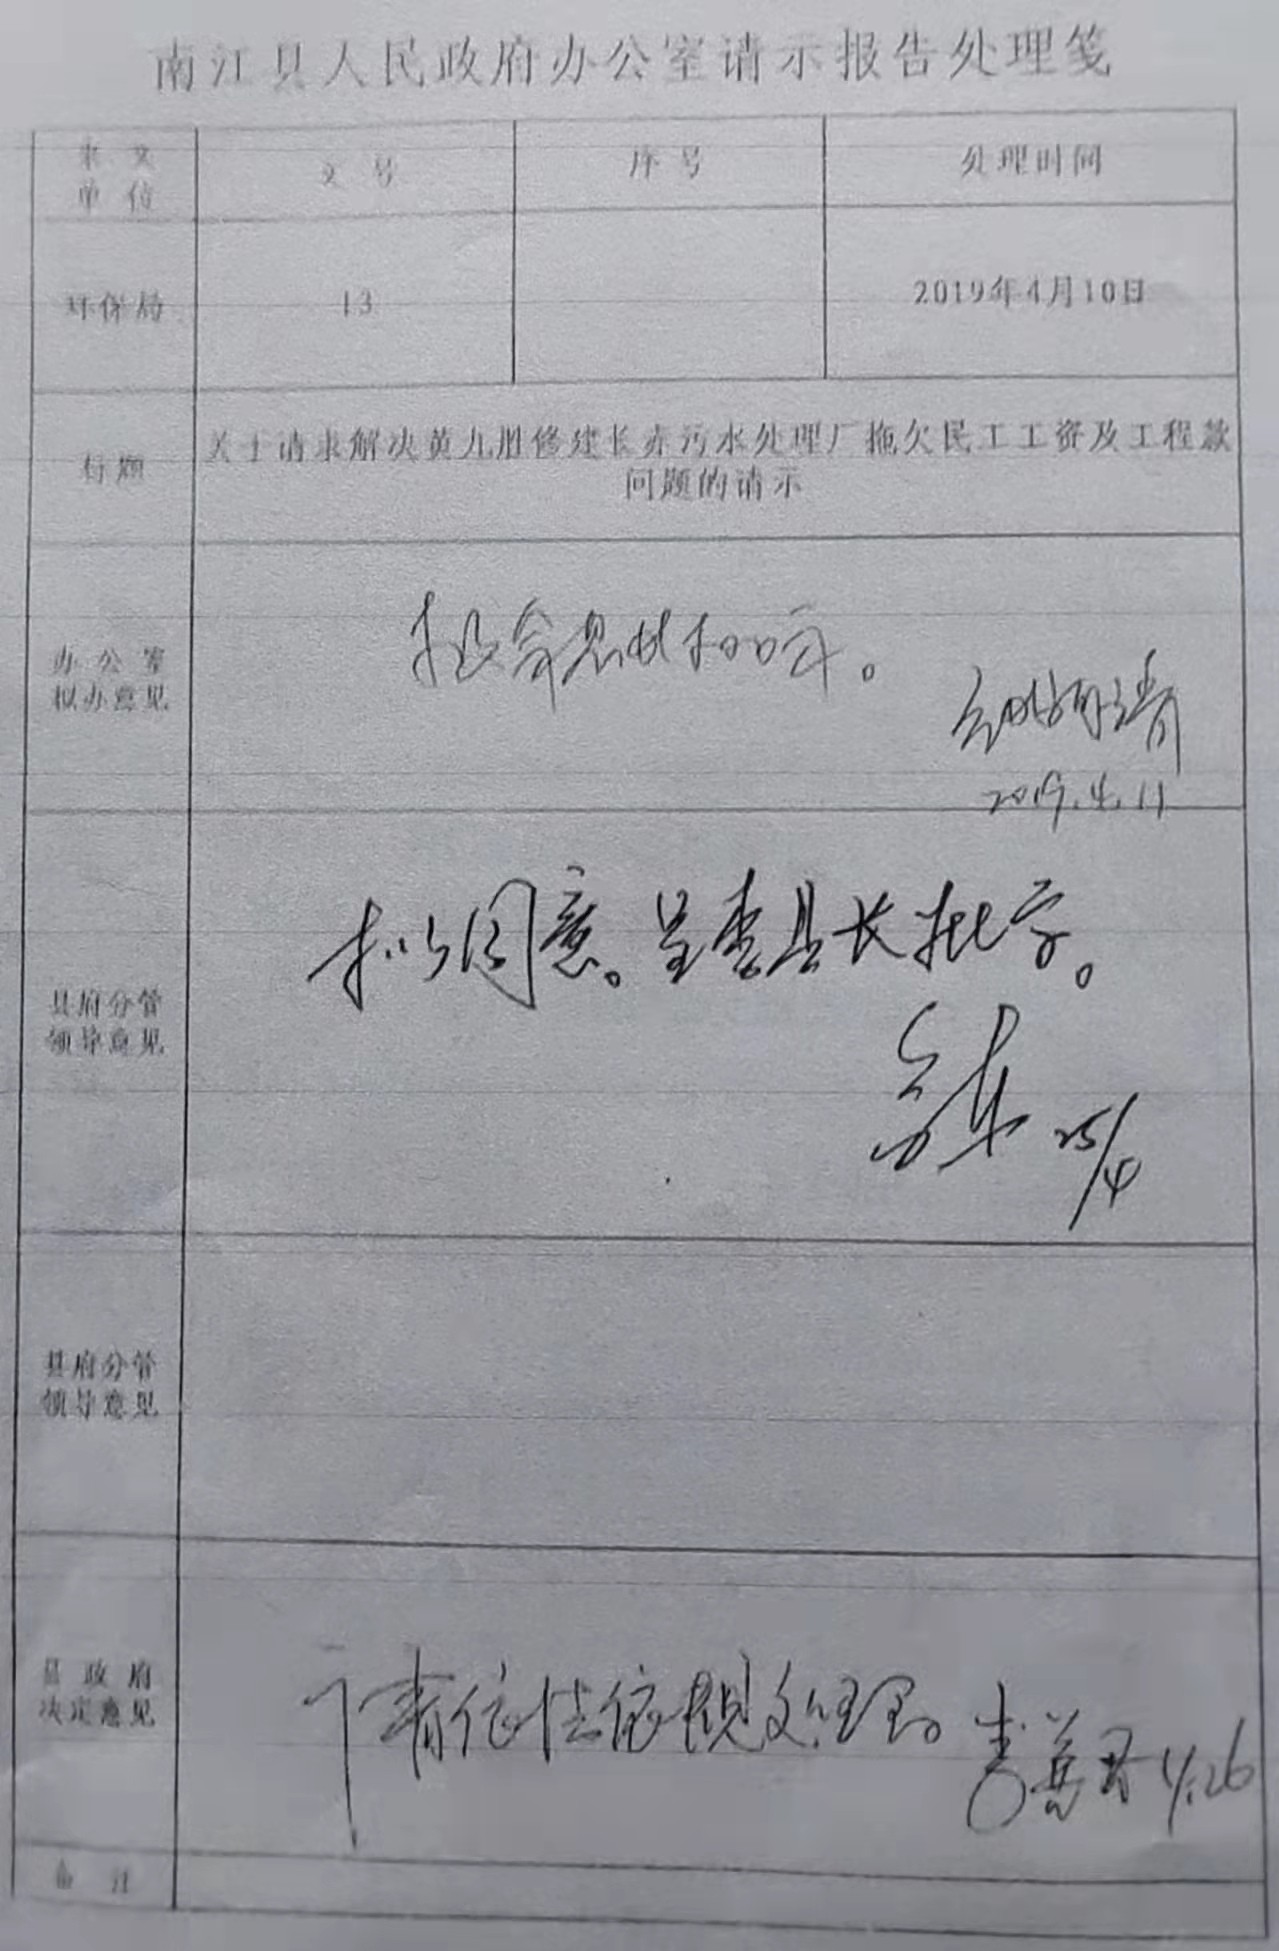 南江县人民政府办公室请示报告处理笺
来文
单位
文号
序号
处理时间
环保局
13
2019年4月10日
标题
关于请求解决黄九胜修建长赤污水处理厂拖欠民工工资及工程款
问题的请示
办公室
拟办意见
2019.4.11
县府分管
领导意见
拟同意。呈李县长批示。
25/4
县府分管
领导意见
县政府
决定意见
请依法依规处理。李善君 4.26
备注